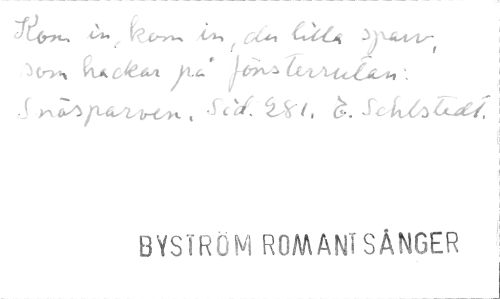 Kom in, kom in, du lilla sparv,
som hackar på fönsterrutan.
Snösparven. Sid. 281. E. Sehlstedt.
BYSTRÖM ROMANT SÅNGER